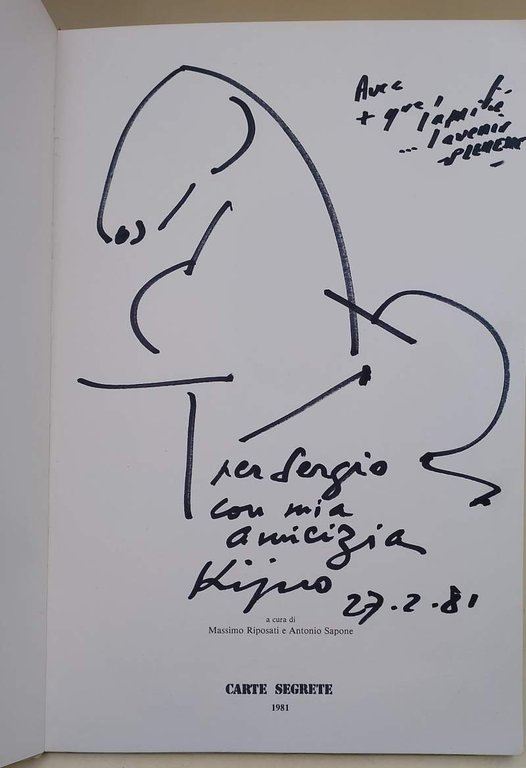 Avec
+ que l'amitié
... l'avenir
per Sergio
con mia
amicizia
Kijno
27.2.81
a cura di
Massimo Riposati e Antonio Sapone
CARTE SEGRETE
1981